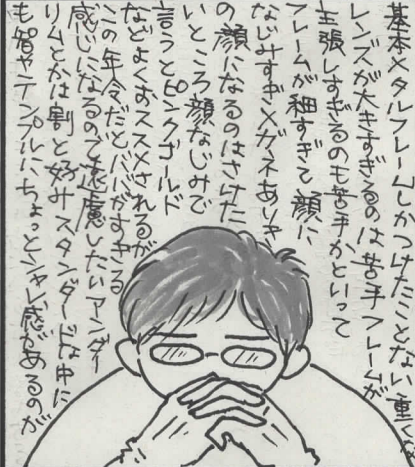 基本メタルフレームしかつけたことない重くて
レンズが大きすぎるのは苦手フレームが
主張しすぎるのも苦手かといって
フレームが細すぎて顔に
なじみすぎメガネありき
の顔になるのはさけた
いところ顔なじみで
言うとピンクゴールド
などよくおススメされるが
この年令だとババがすぎる
感じになるので遠慮したいアンダー
リムとかは割と好みスタンダードな中に
も智やテンプルにちょっとシャレ感があるのが